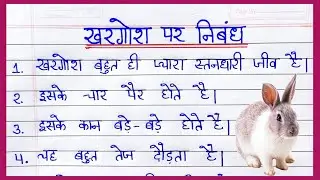 खरगोश पर निबंध
1. खरगोश बहुत ही प्यारा स्तनधारी जीव है|
2. इसके चार पैर होते है|
3. इसके कान बड़े-बड़े होते है|
4. यह बहुत तेज दौड़ता है|